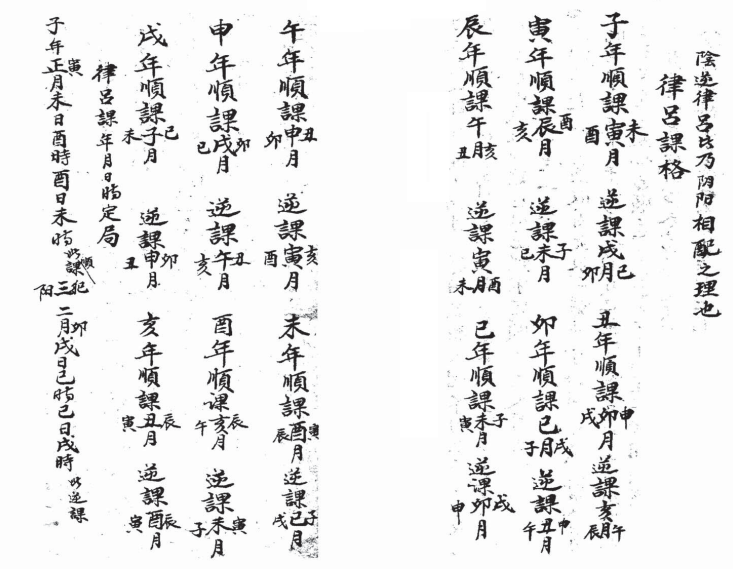 陰逆律呂比乃阴阳相配之理也
律呂課格
子年順課寅未酉月 逆課戌巳卯月 丑年順課卯申戌月 逆課亥午辰月
寅年順課辰酉亥月 逆課未子巳月 卯年順課巳戌子月 逆課丑申午月
辰年順課午亥丑月 逆課寅酉未月 巳年順課未子寅月 逆課卯戌申月
午年順課申丑卯月 逆課寅亥酉月 未年順課酉寅辰月 逆課己子戌月
申年順課戌卯巳月 逆課午丑亥月 酉年順课亥辰午月 逆課未寅子月
戌年順課子已未月 逆課申卯丑月 亥年順課丑辰寅月 逆課酉辰寅月
律呂課年月日時定局
子年正寅月未日酉時酉日未時此順課犯三阳 二月卯戌日巳時巳日戌時此逆課